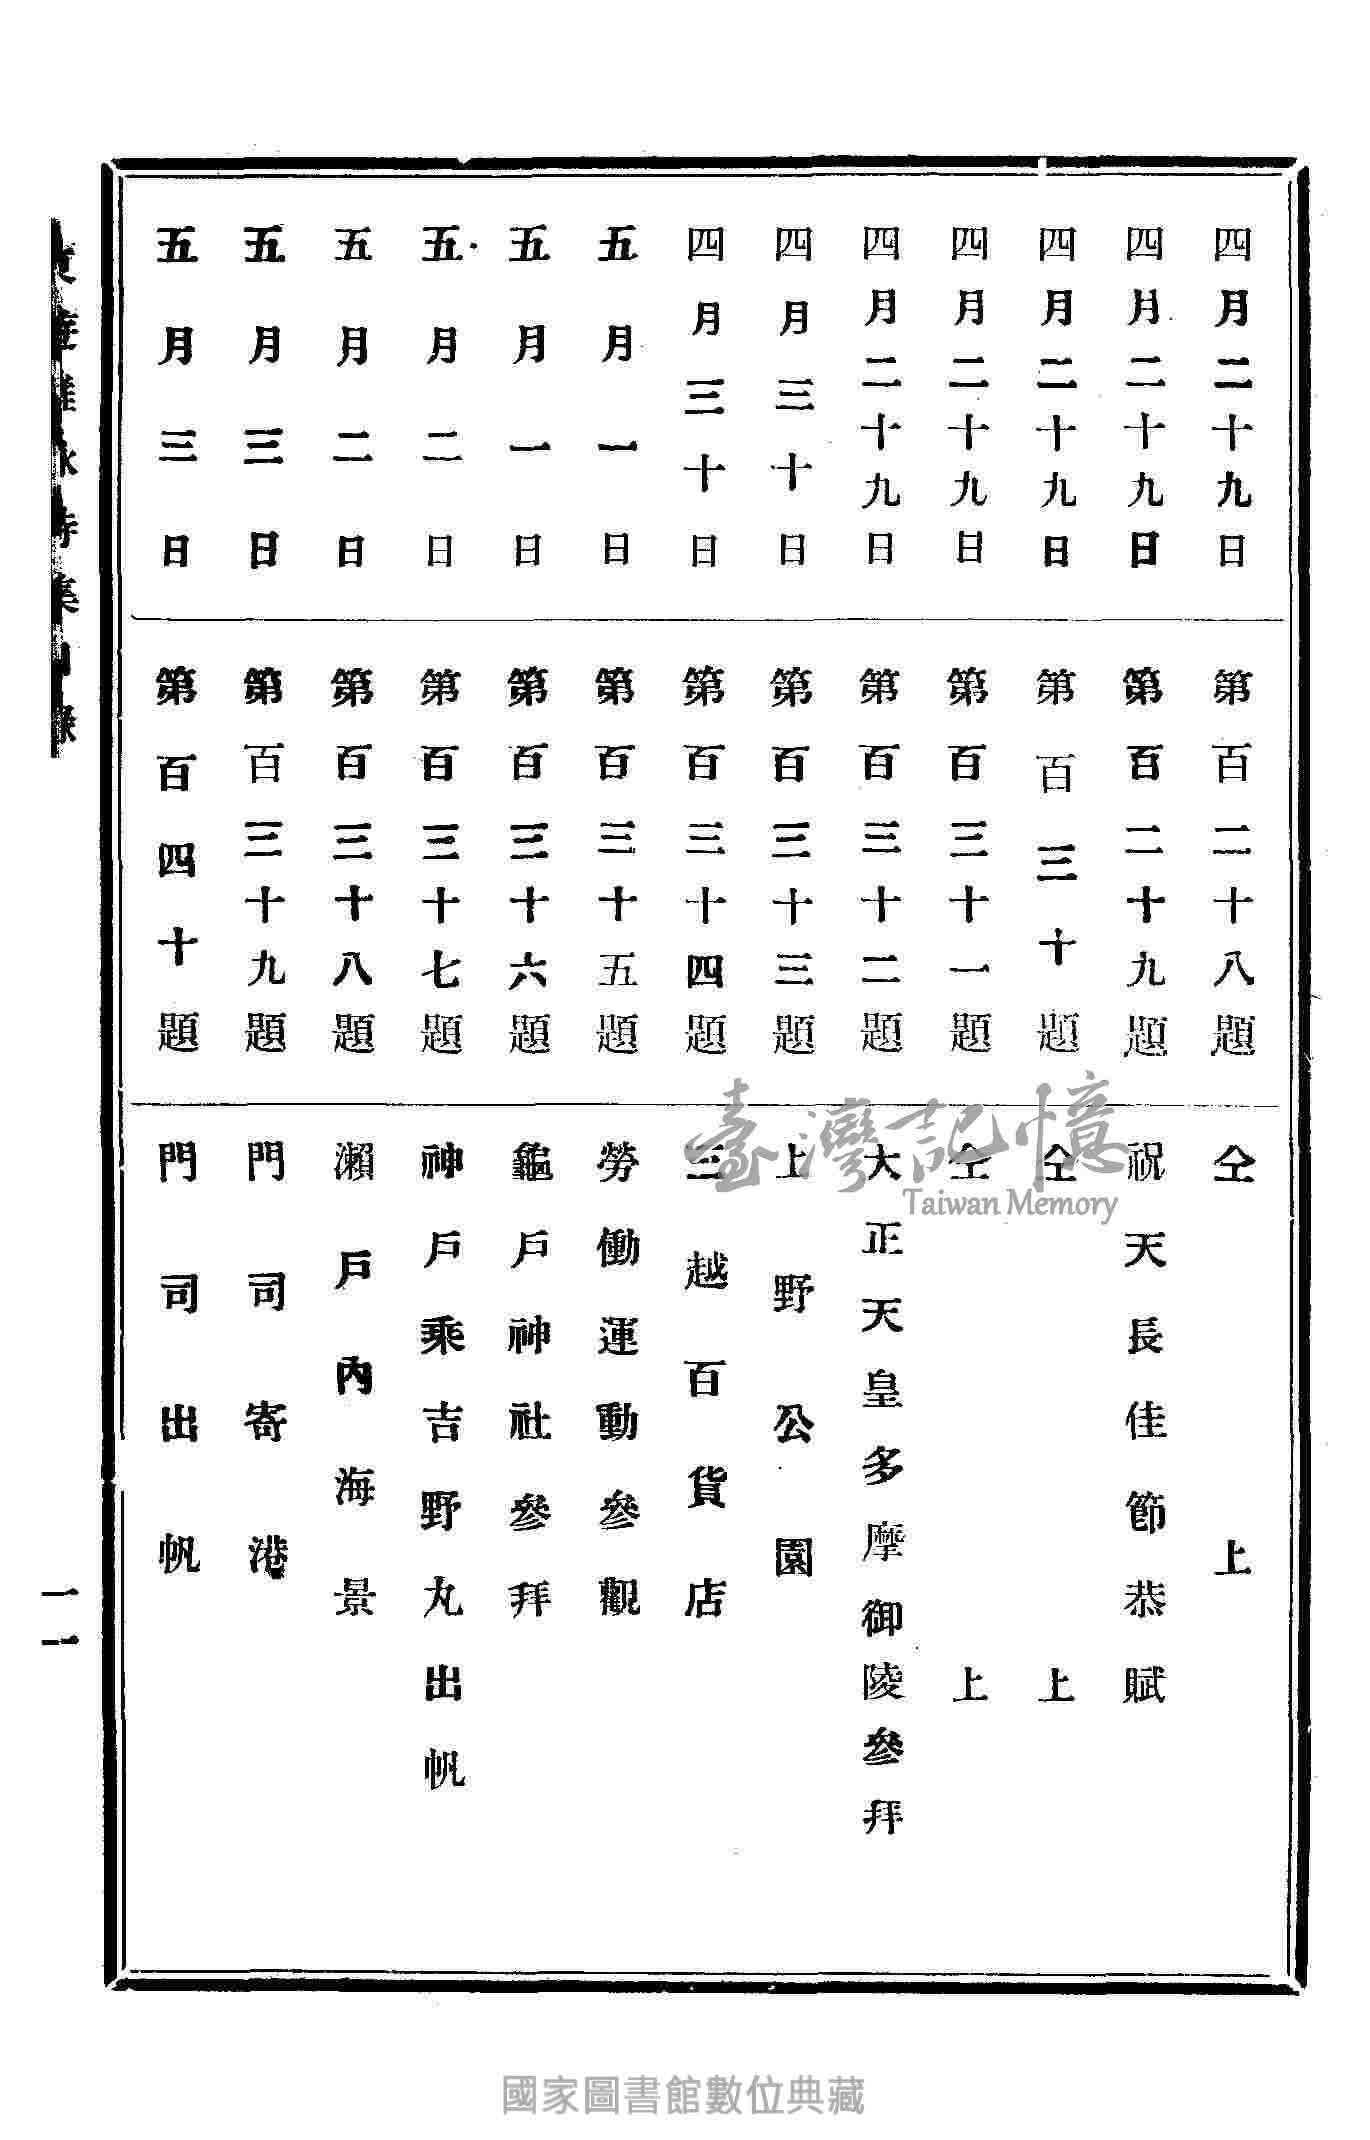 四月二十九日 第百二十八題 仝上
四月二十九日 第百二十九題 祝天長佳節恭賦
四月二十九日 第百三十題 仝上
四月二十九日 第百三十一題 仝上
四月二十九日 第百三十二題 大正天皇多摩御陵參拜
四月三十日 第百三十三題 上野公園
四月三十日 第百三十四題 三越百貨店
五月一日 第百三十五題 勞働運動參觀
五月一日 第百三十六題 龜戶神社參拜
五月二日 第百三十七題 神戶乘吉野丸出帆
五月二日 第百三十八題 瀨戶內海景
五月三日 第百三十九題 門司寄港
五月三日 第百四十題 門司出帆
詩集目錄
一一
臺灣記憶
Taiwan Memory
國家圖書館數位典藏